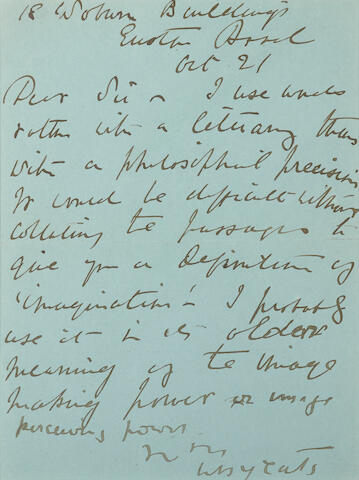 18 Woburn Buildings
Euston Road
Oct 21
Dear Sir – I use words
rather with a literary than
with a philosophical precision
It would be difficult without
collating the passages to
give you a definition of
'imagination' – I probably
use it in its older
meaning of the image
making power or image
perceiving power.
Yrs
WB Yeats